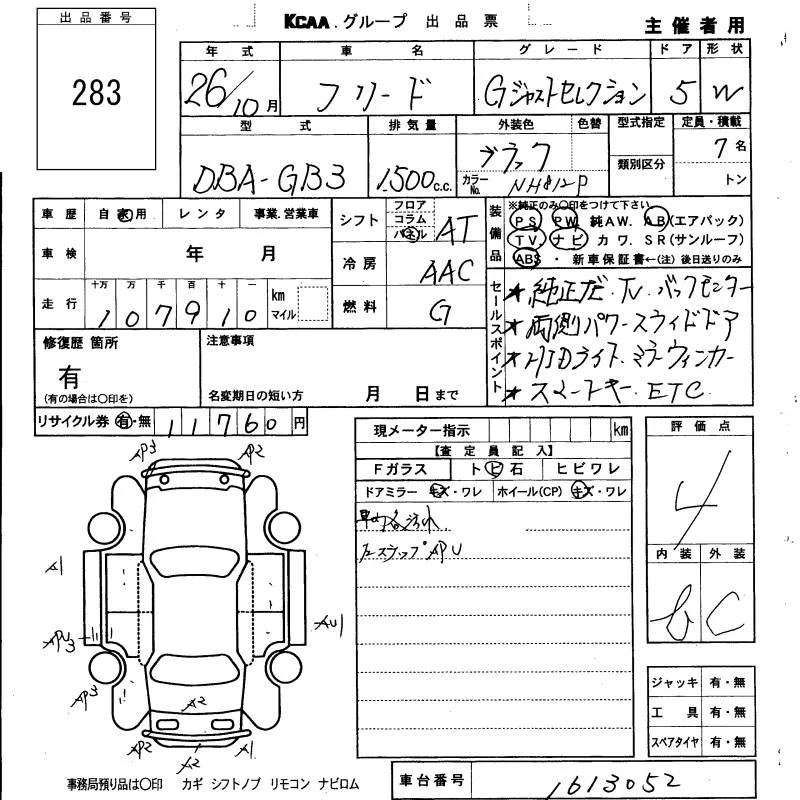 出品番号
283
KCAA.グループ 出品票
主催者用
年式 車名 グレード ドア 形状
26/10月 フリード Gジャストセレクション 5 W
型式 排気量 外装色 色替 型式指定 定員・積載
DBA-GB3 1,500c.c. ブラック 7名
カラーNo. NH812P 類別区分 トン
車歴 自家用 レンタ 事業.営業車
シフト フロア コラム パネル AT
装備品 ※純正のみ〇印をつけて下さい
PS PW 純AW. AB(エアバック)
TV. ナビ カワ. SR(サンルーフ)
ABS ・ 新車保証書←(注)後日送りのみ
車検 年 月
冷房 AAC
走行 十万 万 千 百 十 一 km マイル
107910
燃料 G
セールスポイント
★純正ナビ.TV.バックモニター
★両側パワースライドドア
★HIDライト.ミラーウィンカー
★スマートキー.ETC
修復歴 箇所
有
(有の場合は〇印を)
注意事項
名変期日の短い方 月 日まで
リサイクル券 有・無 11760円
現メーター指示 km
【査定員記入】
Fガラス トビ石 ヒビワレ
ドアミラー キズ・ワレ ホイール(CP) キズ・ワレ
車内各汚れ
APU
評価点
4
内装 外装
b C
AP3 A2
A1
AU1
APU3
AP3
A2
AP2 A2 A1
ジャッキ 有・無
工具 有・無
スペアタイヤ 有・無
事務局預り品は〇印 カギ シフトノブ リモコン ナビロム
車台番号 1613052